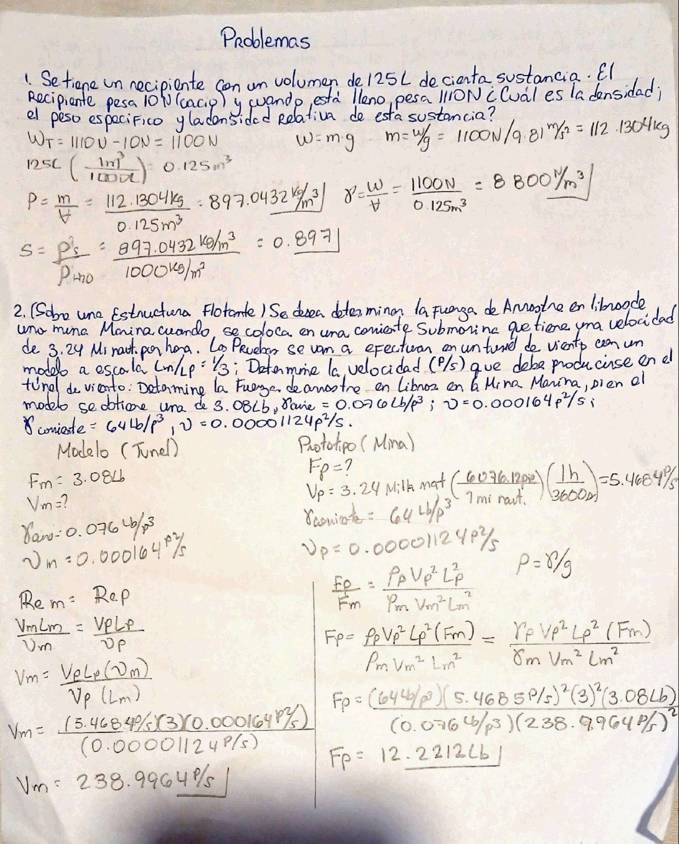 Problemas
1. Se tiene un recipiente con un volumen de 125L de cierta sustancia. El
Recipiente pesa 10N (vacio) y cuando está lleno, pesa 1110N ¿Cuál es la densidad;
el peso especifico y la densidad Relativa de esta sustancia?
WT = 1110N - 10N = 1100N W = m·g m = w/g = 1100N/9.81 m/s² = 112.1304kg
125L (1m³/1000L) = 0.125m³
ρ = m/V = 112.1304kg/0.125m³ = 897.0432 kg/m³ γ = W/V = 1100N/0.125m³ = 8 800 N/m³
S = ρs/ρH2O = 897.0432 kg/m³/1000 kg/m³ = 0.897
2. (Sobre una Estructura Flotante) Se desea determinar la Fuerza de Arrostre en libras de
una mina Marina cuando, se coloca en una corriente Submarina que tiene una velocidad
de 3.24 Mi naut. por hora. Las Pruebas se van a efectuar en un tunel de viento con un
modelo a escala Lm/Lp = 1/3; Determine la velocidad (P/s) que debe producirse en el
túnel de viento: Determine la Fuerza de arrostre en Libras en la Mina Marina, si en el
modelo se obtiene una de 3.08Lb, γaire = 0.076Lb/p³; ν = 0.000164p²/s;
γcorriente = 64Lb/p³, ν = 0.00001124p²/s.
Modelo (Tunel)
Fm = 3.08Lb
Vm = ?
γaire = 0.076 Lb/p³
νm = 0.000164 p²/s
Prototipo (Mina)
Fp = ?
Vp = 3.24 Mi/h naut (6076.12pie/1 mi naut.) (1h/3600s) = 5.4684 P/s
γcorriente = 64 Lb/p³
νp = 0.00001124 p²/s
Rem = Rep
VmLm/νm = VpLp/νp
Vm = VpLp(νm)/νp(Lm)
Vm = (5.4684P/s)(3)(0.000164P²/s)/(0.00001124P/s)
Vm = 238.9964 P/s
Fp/Fm = ρp Vp² Lp²/ρm Vm² Lm² ρ = γ/g
Fp = ρp Vp² Lp² (Fm)/ρm Vm² Lm² = γp Vp² Lp² (Fm)/γm Vm² Lm²
Fp = (64Lb/p³)(5.4685P/s)²(3)²(3.08Lb)/(0.076 Lb/p³)(238.9964 P/s)²
Fp = 12.2212Lb